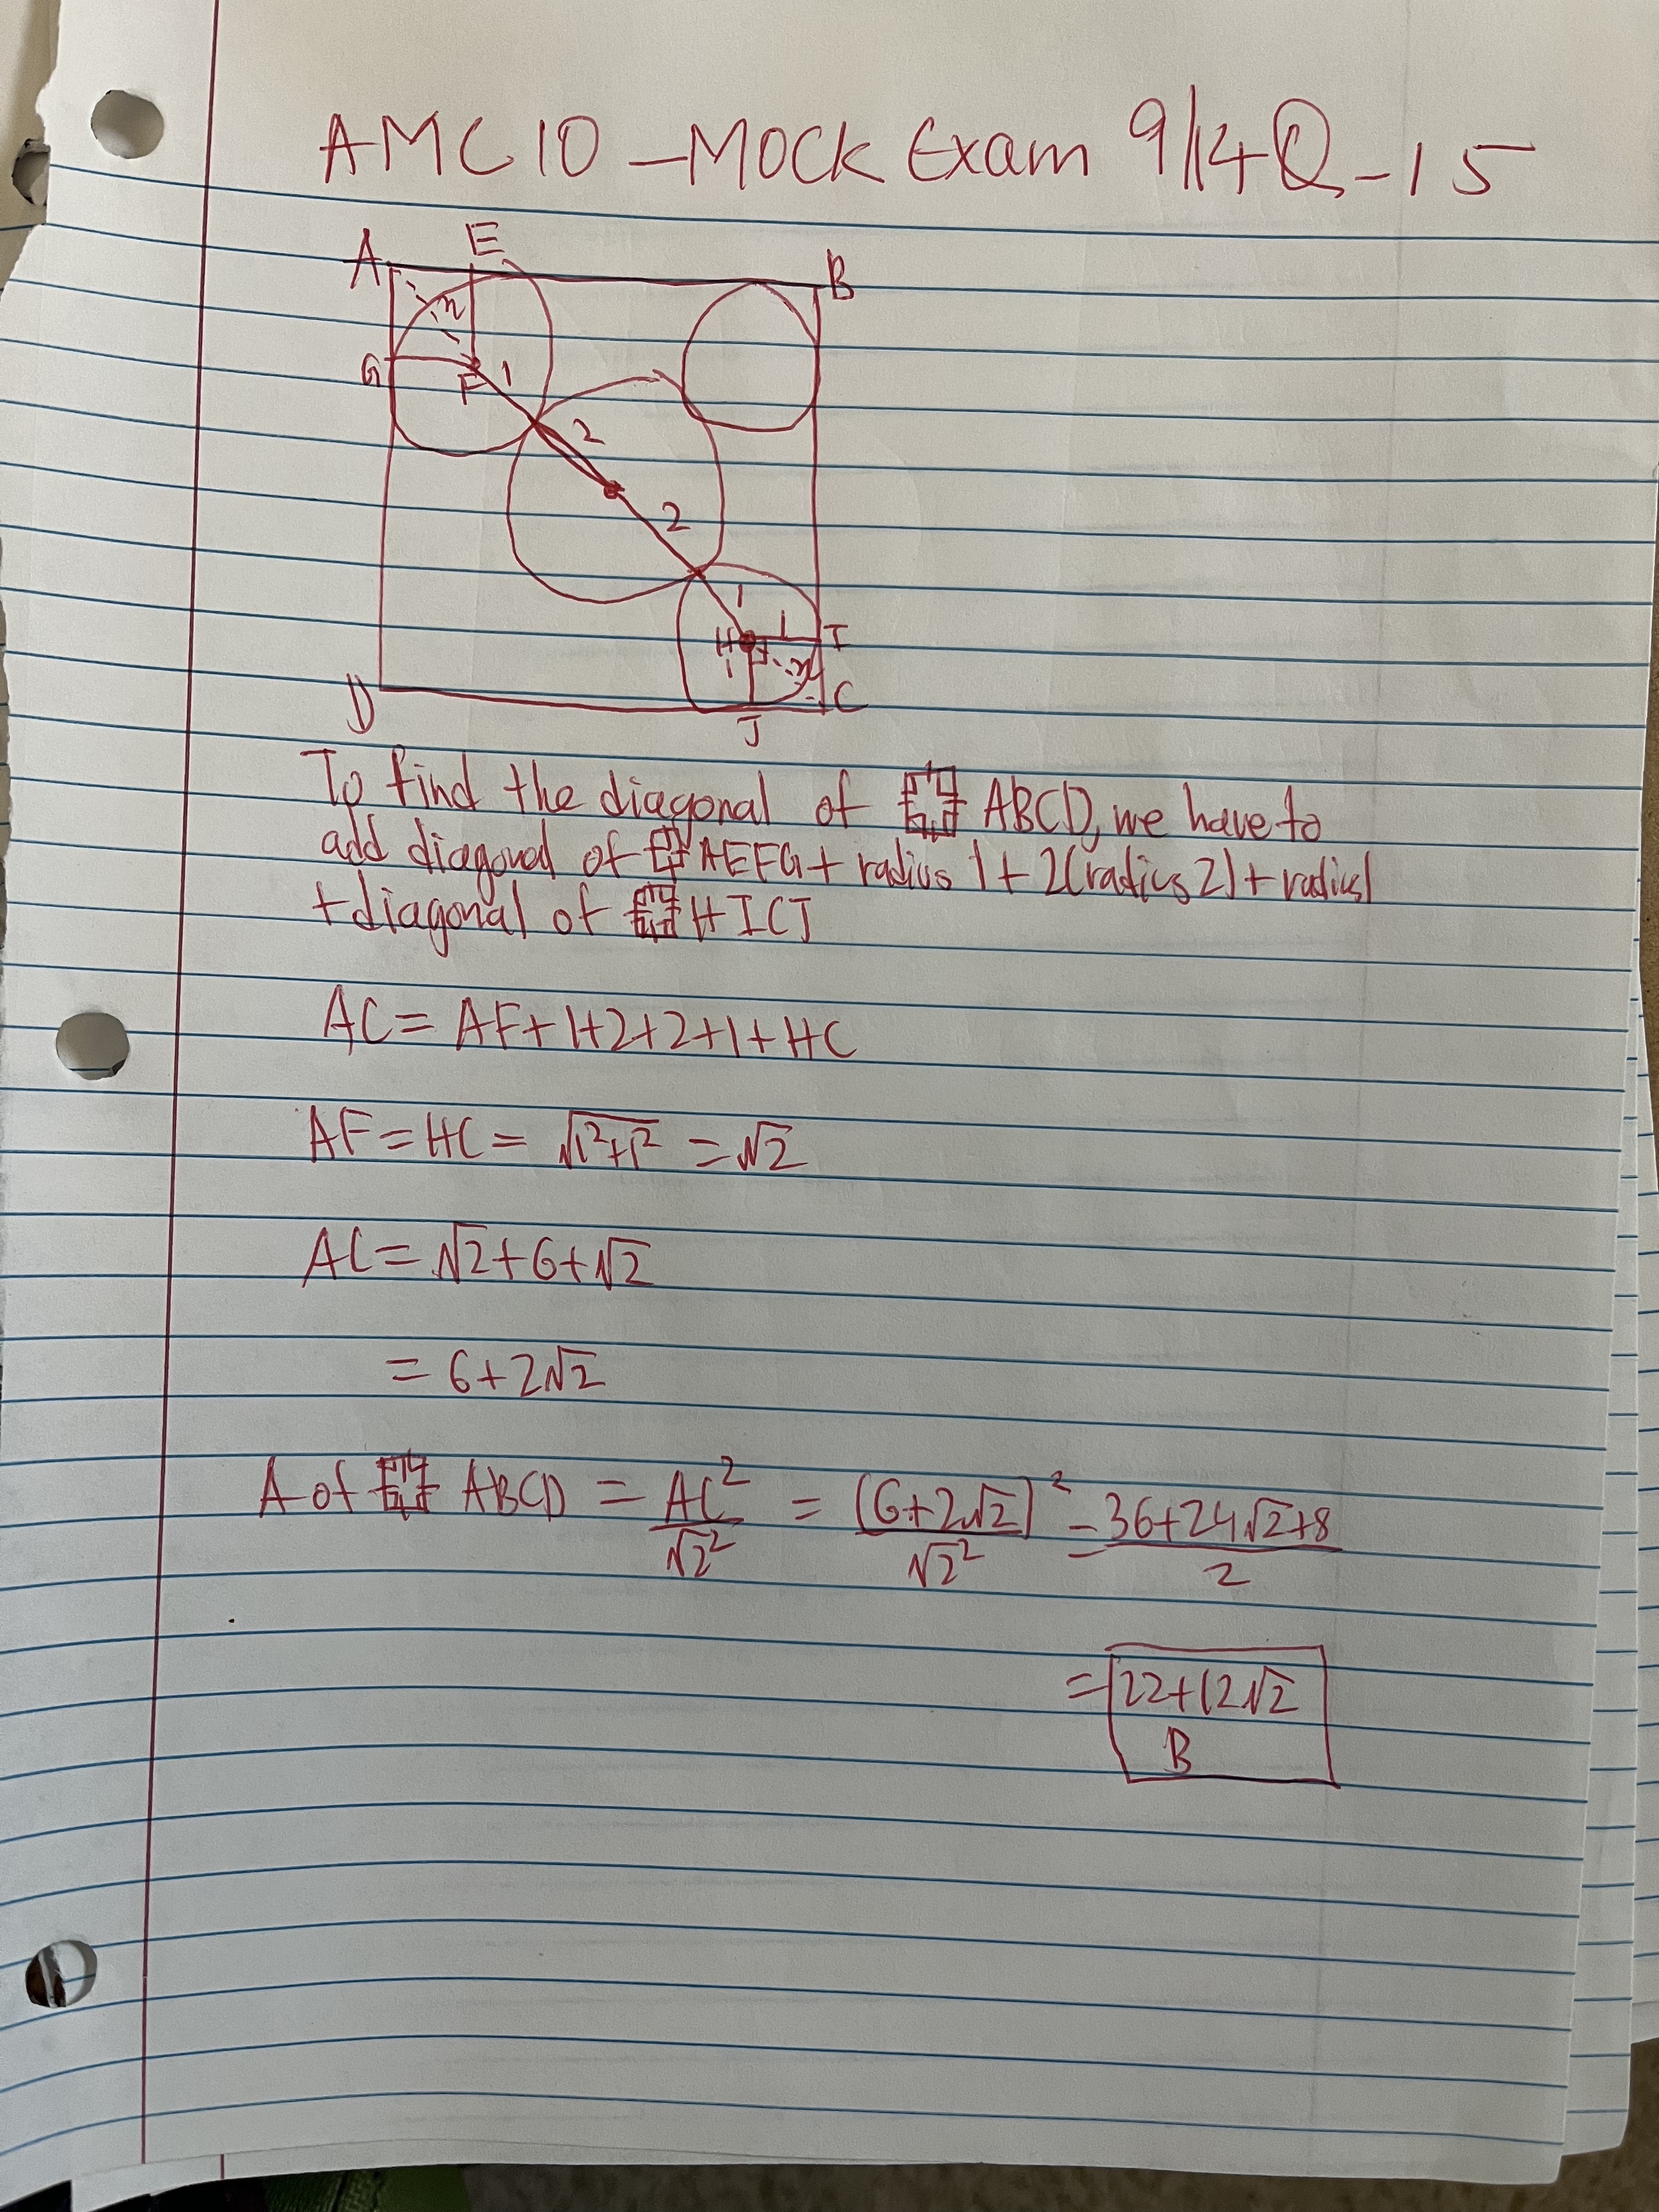 AMC 10 - Mock Exam 9/14 Q-15
A E B
n
G F 1
2
2
1
H 1 I
1 n
D J C
To find the diagonal of ABCD, we have to
add diagonal of AEFG + radius 1 + 2(radius 2) + radius 1
+ diagonal of HICJ
AC = AF + 1 + 2 + 2 + 1 + HC
AF = HC = √1²+1² = √2
AC = √2 + 6 + √2
= 6 + 2√2
A of ABCD = AC²/√2² = (6+2√2)²/√2² = 36+24√2+8/2
= 22+12√2
B